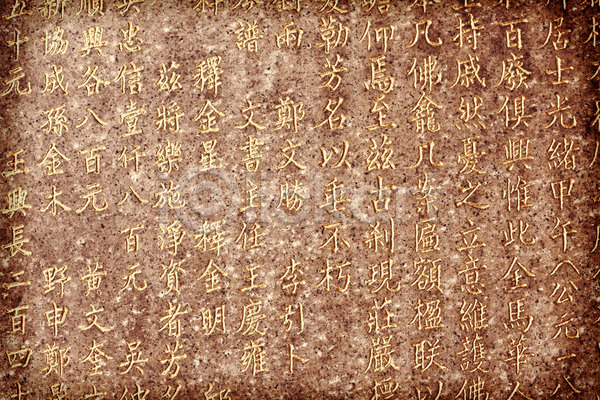 居士光緒甲午(公元一八
百廢俱興惟此金馬華人
持戚然憂之立意維護佛
本几佛龕几案匾額楹聯以
仰焉至茲古刹現莊嚴標
勒芳名以垂不朽
雨 鄭文勝 李引卜
譜 文書主任王慶雍
釋金星 釋金明 邱
茲將樂施淨資者芳名
忠信壹仟八百元 吳
順興各八百元 黃文奎
新協成孫金木 野申鄭
五十元 王興長二百四十